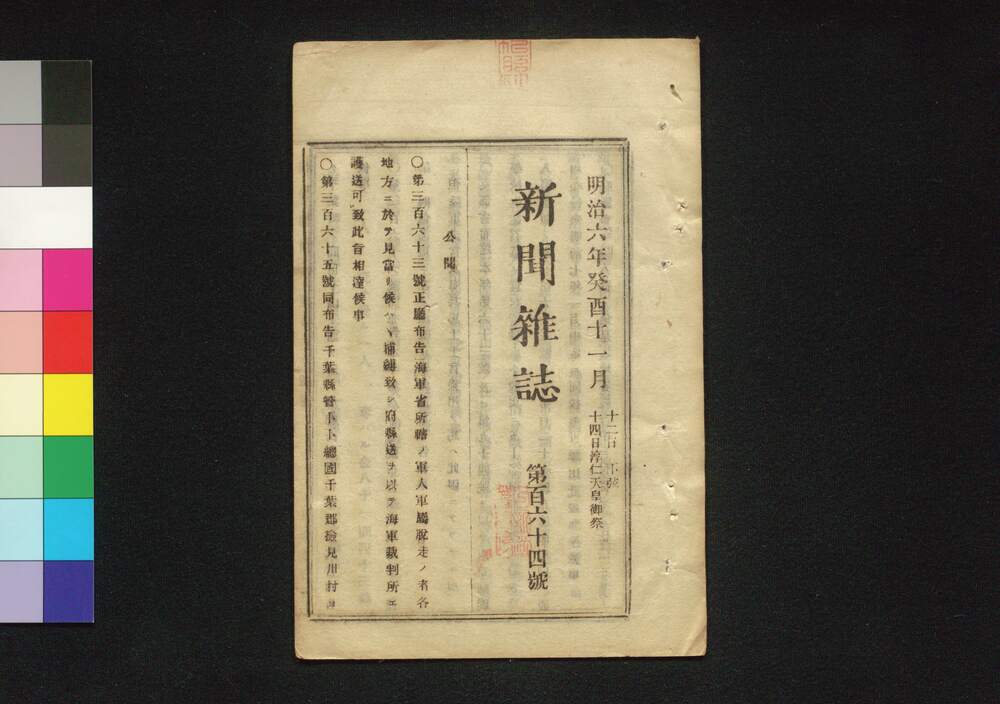 明治六年癸酉十一月
十二日 下弦
十四日淳仁天皇御祭
新聞雜誌
第百六十四號
公聞
〇第三百六十三號正廳布告海軍省所轄ノ軍人軍屬脫走ノ者各
地方ニ於テ見當リ候ハヽ捕縛致シ府縣送ヲ以テ海軍裁判所ヱ
護送可致此旨相達候事
〇第三百六十五號同布告千葉縣管下下總國千葉郡檢見川村ヨ